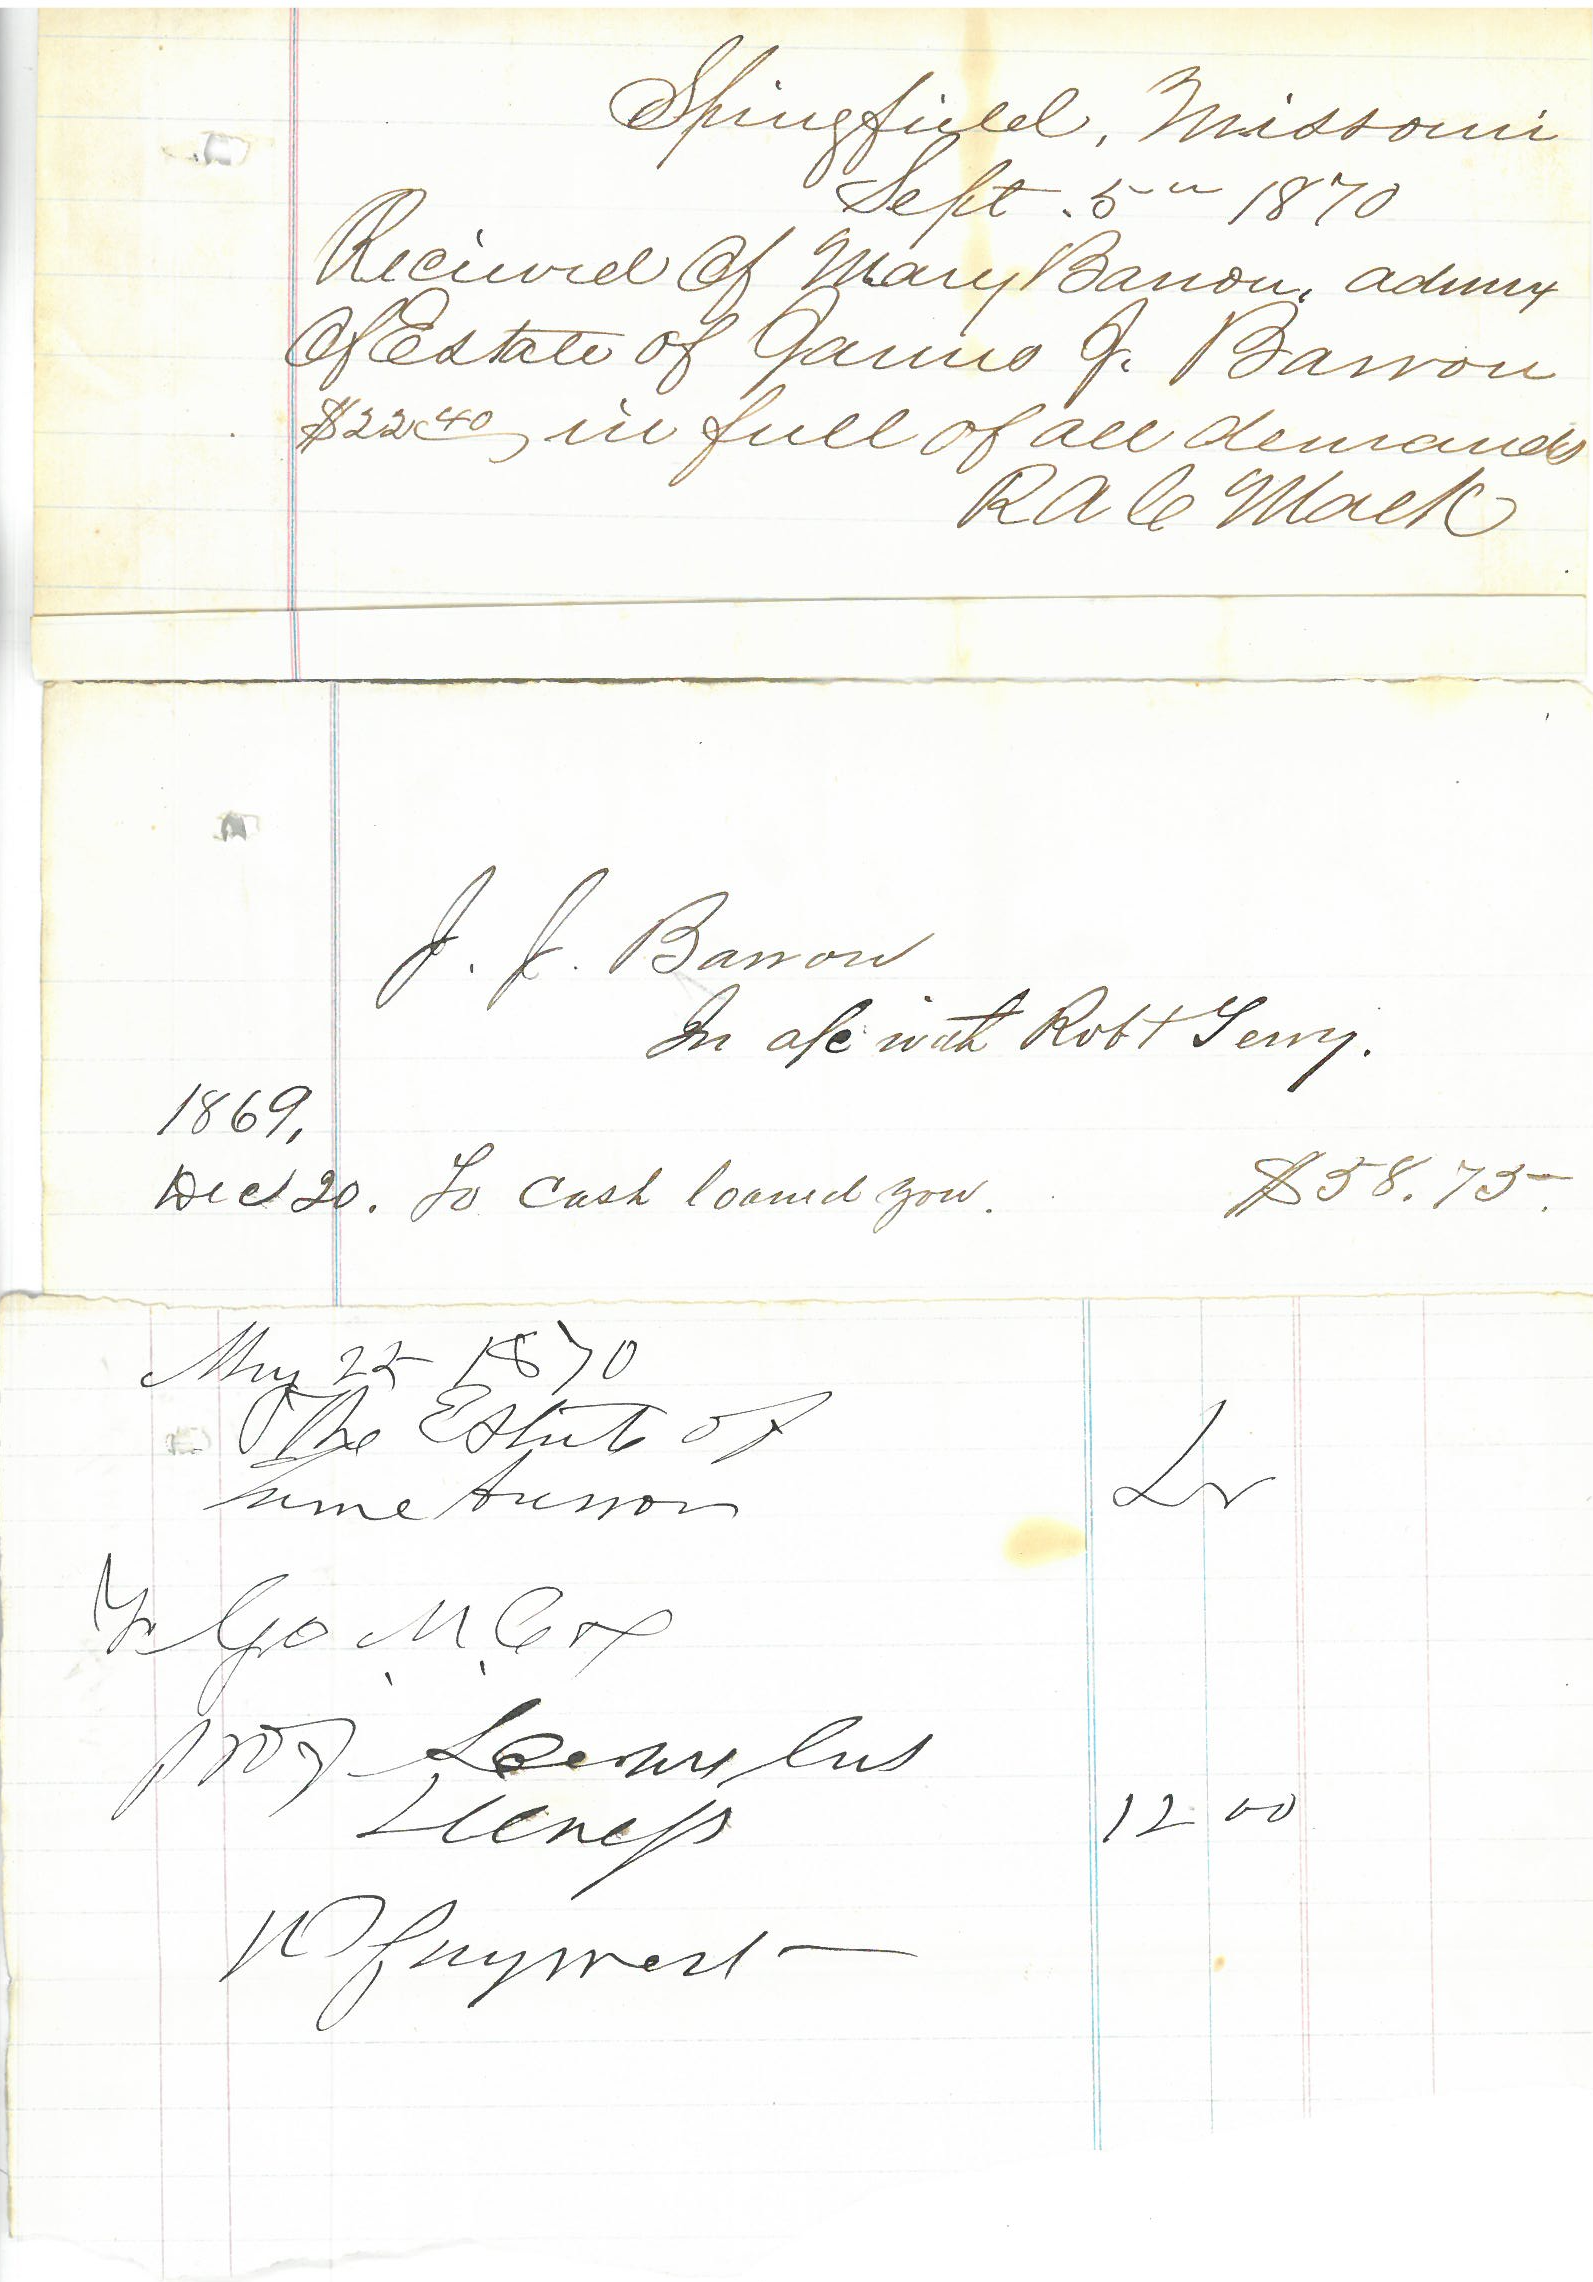 Springfield, Missouri
Sept. 5th 1870
Recieved Of Mary Barron, admrx
Of Estate of James J. Barron
$22 40, in full of all demands
R A C Mack
J. J. Barron
In a/c with Robt
1869,
Dec 20. To Cash loaned you. $58.75.
May 25 1870
The Estate of Dr
Barron
To Geo M. Cox
12 00
payment